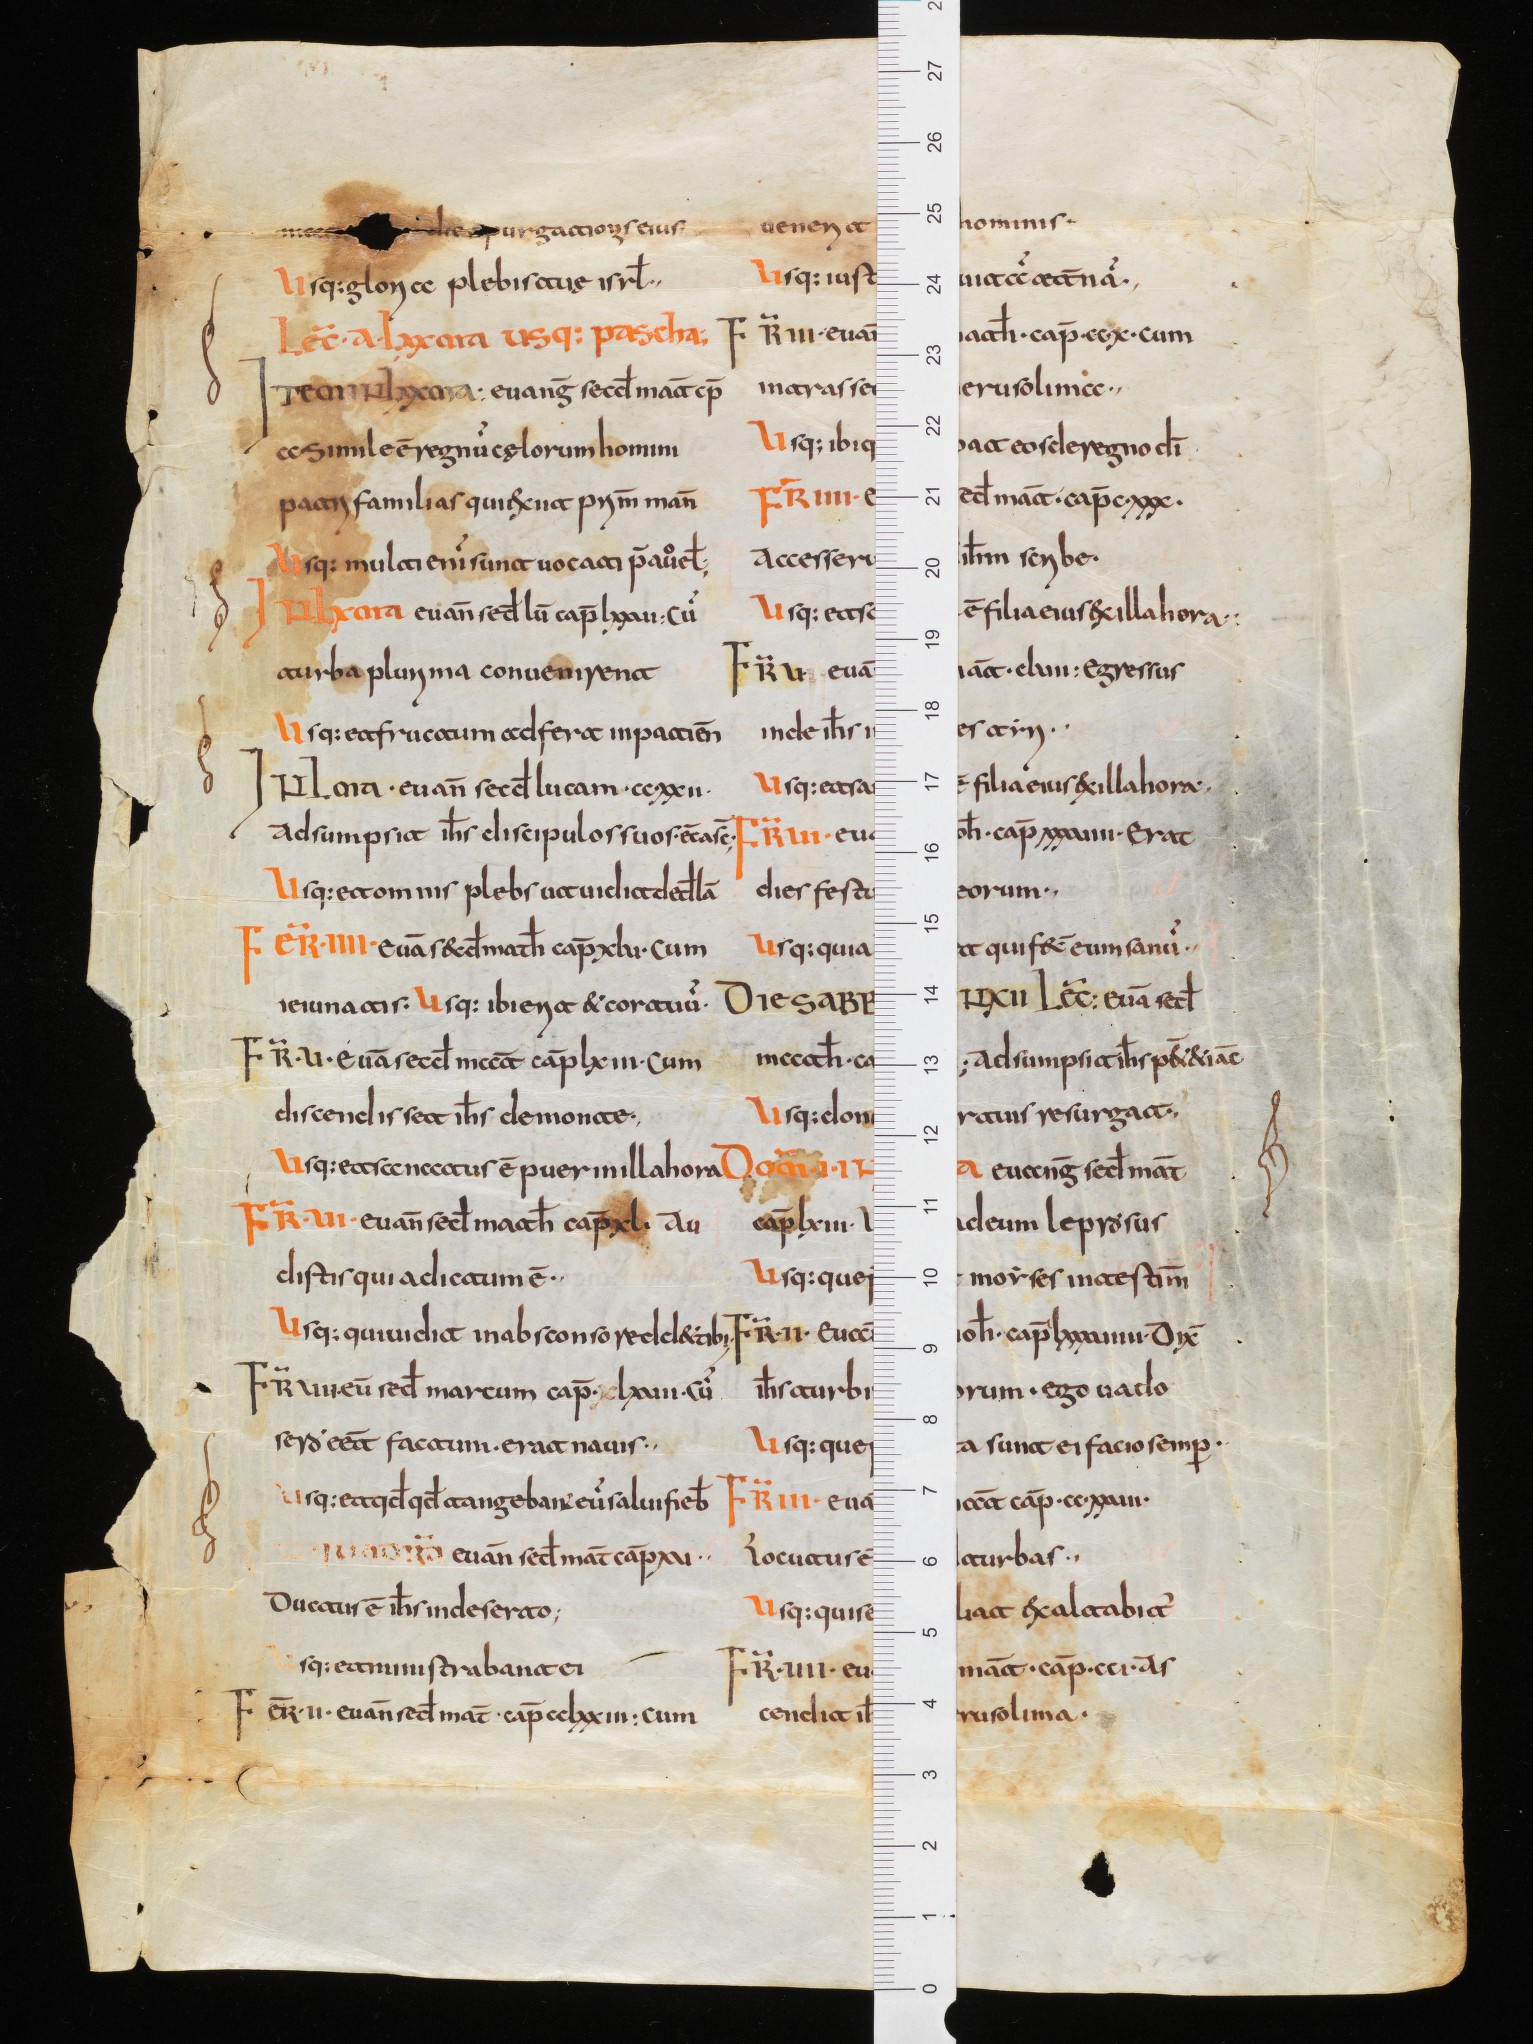 purgationis eius
Usq: gloria plebis tuę isrl̄
Lec̄ · A · lxxma usq: pascha;
IТem in lxxma: euang̅ secd̄ mat̄ cp̄
cc Simile ē regnū cęlorum homini
patri familias qui exiit prim̄ man̄
Usq: multi eni sunt uocati p̄au u el̄;
In lxma euan̄ sed̄ lu̅ cap̄ lxxui: cū
turba plurima conuenirent
Usq: et fructum adfert in patien̄
In Lma · euan̄ secd̄ lucam · ccxxii ·
Adsumpsit ih̄s discipulos suos · et as̄c̄;
Usq: et omnis plebs ut uidit ded̄ lā
Fer̄ · iiii · euā s&d̄ math̄ cap̄ xlu · cum
ieiunatis: Usq: ibi erit & cor tuū ·
Fr̄ · u · euā secd̄ mat̄ cap̄ lxiii · cum
discendisset ih̄s de monte ·,
Usq: et sanatus ē puer in illa hora
Fr̄ · ui · euan̄ sed̄ math̄ cap̄ xl · Au
distis quia dictum ē ··
Usq: qui uidit in absconso redd& tibi
Fr̄ uii · eu̅ sed̄ marcum cap̄ · lxuii · cū
sero eet̄ factum · erat nauis ··
Usq: et qd̄ qd̄ tangebant eū salui fieb̄
euan̄ sed̄ mat̄ cap̄ xui ··
Ductus ē ih̄s in deserto;
Usq: et ministrabant ei
Fer̄ · ii · euan̄ sed̄ mat̄ · cap̄ cclxxiii: cum
uenerit hominis ·
Usq: iust uitā aetnā ·,
Fr̄ iii · euan̄ math̄ · cap̄ · ccx · cum
intrasse erusolima ··
Usq: ibiq bat eos de regno dī
Fr̄ iiii · e ed̄ mat̄ · cap̄ c · xxx ·
Accesseru ih̄m scribe ·
Usq: et sa ē filia eius ex illa hora ·:
Fr̄ u · euā mat̄ · clui: Egressus
inde ih̄s i es tiri ··
Usq: et sa ē filia eius ex illa hora ·
Fr̄ ui · eua oh̄ · cap̄ xxxuiii · Erat
dies festu eorum ··
Usq: quia t qui fec̄ eum sanū ··
Die sabb in xii Lec̄: euā secd̄
math̄ · ca ; Adsumpsit ih̄s p&& iac̄
Usq: don rtuis resurgat ·,
Dom̄ · i · in a euang̅ secd̄ mat̄
cap̄ lxiii · adeum leprosus
Usq: que moyses in testim̄
Fr̄ · ii · Euan ioh̄ · cap̄ lxxxuiiii · Dix̄
ih̄s turbi orum · ego uado
Usq: que ta sunt ei facio semp ·
Fr̄ iii · eua mat̄ cap̄ · cc · xxuii ·
Locutus ē turbas ··
Usq: qui se liat exaltabit
Fr̄ · iiii · eu mat̄ · cap̄ · cci · As
cendit ih erusolima ·
0 1 2 3 4 5 6 7 8 9 10 11 12 13 14 15 16 17 18 19 20 21 22 23 24 25 26 27